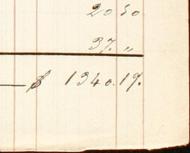 20 50.
37. "
$ 1340.19.